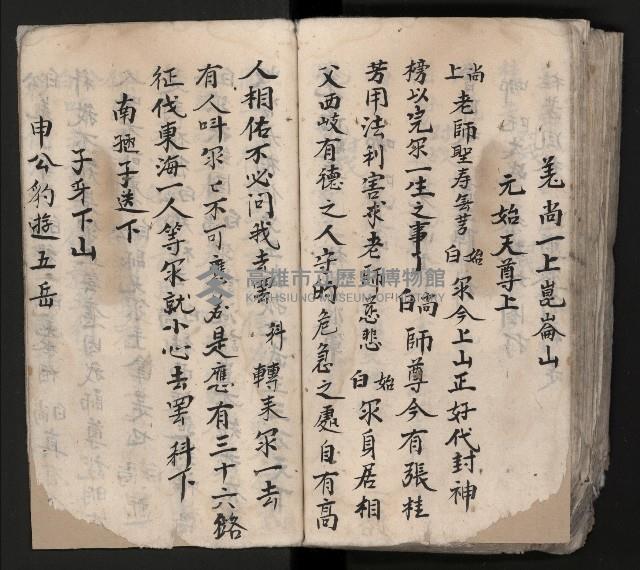 羌尚一上崑崙山
元始天尊上
尚上老師聖寿無薑 始白 尔今上山正好代封神
榜以完尔一生之事了 尚白 師尊今有張桂
芳用法利害求老師慈悲 始白 尔身居相
父西岐有德之人守的危急之處自有高
人相佑不必問我去罢 科 轉来尔一去
有人叫尔匕不可應若是應有三十六路
征伐東海一人等尔就小心去罢 科下
南極子送下
子牙下山
申公豹遊五岳
高雄市立歷史博物館
KAOHSIUNG MUSEUM OF HISTORY